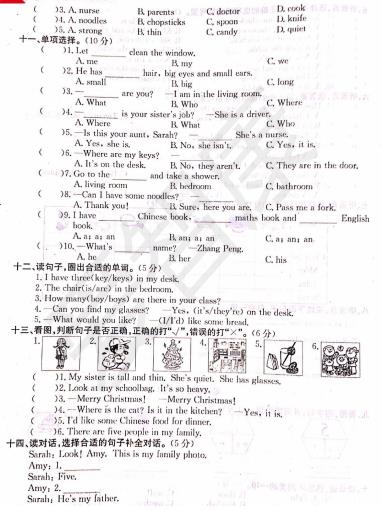 ( )3. A. nurse B. parents C. doctor D. cook
( )4. A. noodles B. chopsticks C. spoon D. knife
( )5. A. strong B. thin C. candy D. quiet
十一、单项选择。(10 分)
( )1. Let ________ clean the window.
A. me B. my C. we
( )2. He has ________ hair, big eyes and small ears.
A. small B. big C. long
( )3. —________ are you? —I am in the living room.
A. What B. Who C. Where
( )4. —________ is your sister's job? —She is a driver.
A. Where B. What C. Who
( )5. —Is this your aunt, Sarah? —________ She's a nurse.
A. Yes, she is. B. No, she isn't. C. Yes, it is.
( )6. —Where are my keys? —________
A. It's on the desk. B. No, they aren't. C. They are in the door.
( )7. Go to the ________ and take a shower.
A. living room B. bedroom C. bathroom
( )8. —Can I have some noodles? —________
A. Thank you! B. Sure, here you are. C. Pass me a fork.
( )9. I have ________ Chinese book, ________ maths book and ________ English
book.
A. a; a; an B. an; a; an C. a; an; an
( )10. —What's ________ name? —Zhang Peng.
A. he B. her C. his
十二、读句子,圈出合适的单词。(5 分)
1. I have three(key/keys) in my desk.
2. The chair(is/are) in the bedroom.
3. How many(boy/boys) are there in your class?
4. —Can you find my glasses? —Yes, (it's/they're) on the desk.
5. —What would you like? —(I/I'd) like some bread.
十三、看图,判断句子是否正确,正确的打"√",错误的打"×"。(6 分)
1. 2. 3. 4. 5. 6.
( )1. My sister is tall and thin. She's quiet. She has glasses.
( )2. Look at my schoolbag. It's so heavy.
( )3. —Merry Christmas! —Merry Christmas!
( )4. —Where is the cat? Is it in the kitchen? —Yes, it is.
( )5. I'd like some Chinese food for dinner.
( )6. There are five people in my family.
十四、读对话,选择合适的句子补全对话。(5 分)
Sarah: Look! Amy. This is my family photo.
Amy: 1.________
Sarah: Five.
Amy: 2.________
Sarah: He's my father.